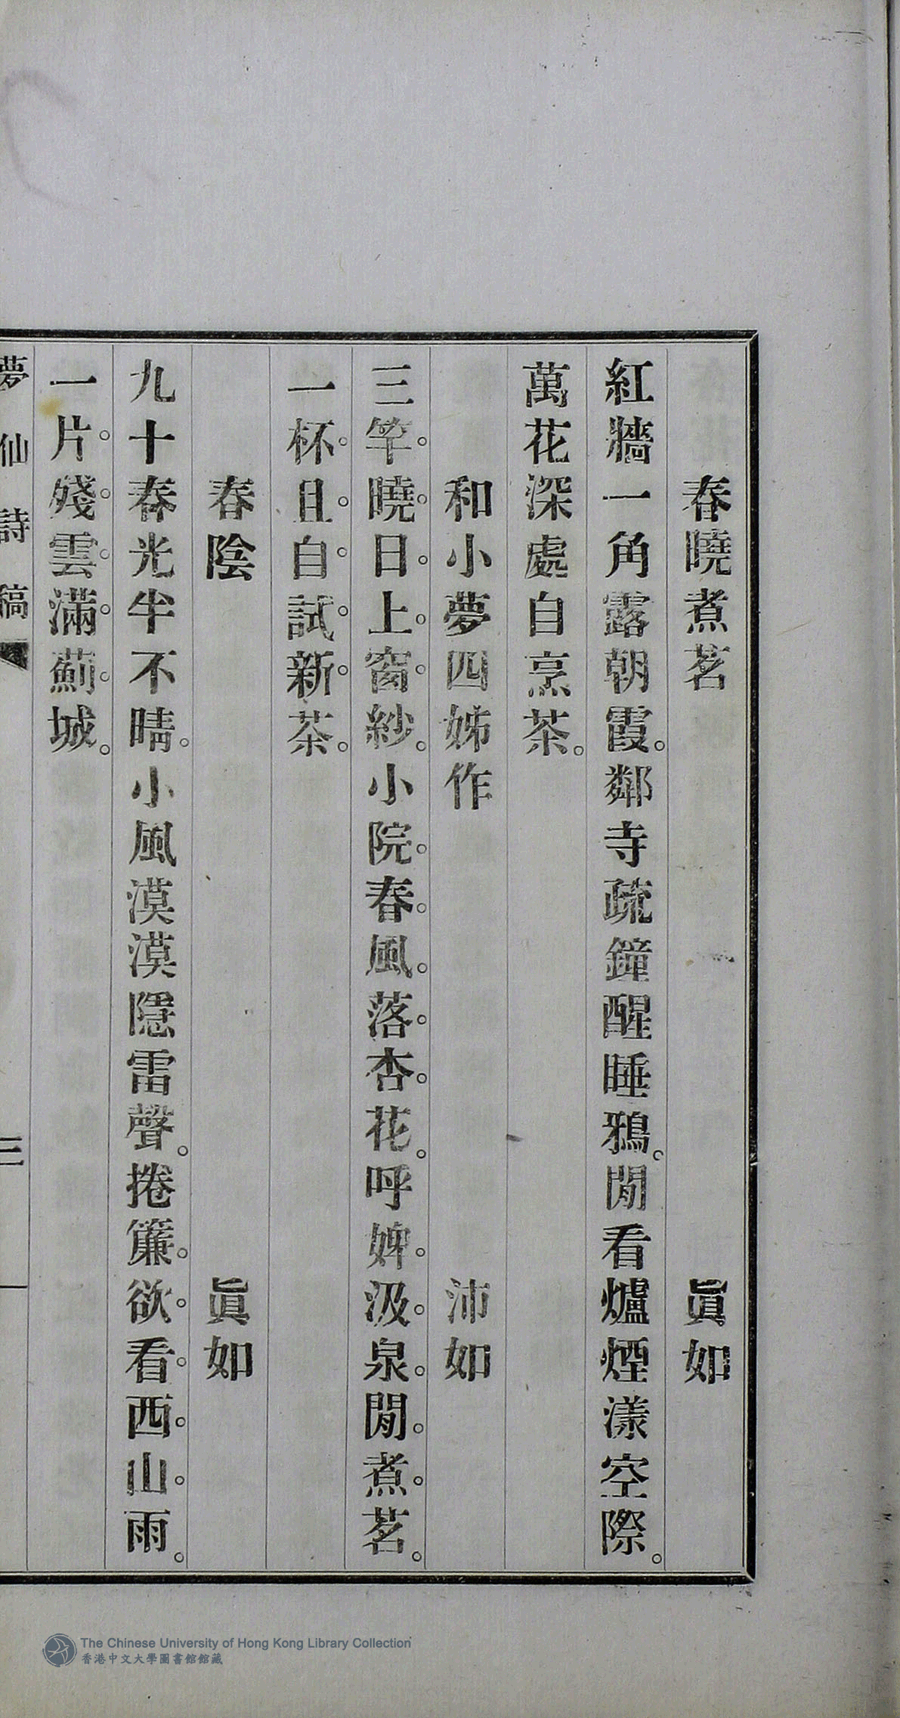 春曉煮茗 眞如
紅牆一角露朝霞。鄰寺疏鐘醒睡鴉。閒看爐煙漾空際。
萬花深處自烹茶。
和小夢四姊作 沛如
三竿曉日上窗紗。小院春風落杏花。呼婢汲泉閒煮茗。
一杯且自試新茶。
春陰 眞如
九十春光半不晴。小風漠漠隱雷聲。捲簾欲看西山雨。
一片殘雲滿薊城。
夢仙詩稿 三
The Chinese University of Hong Kong Library Collection
香港中文大學圖書館館藏